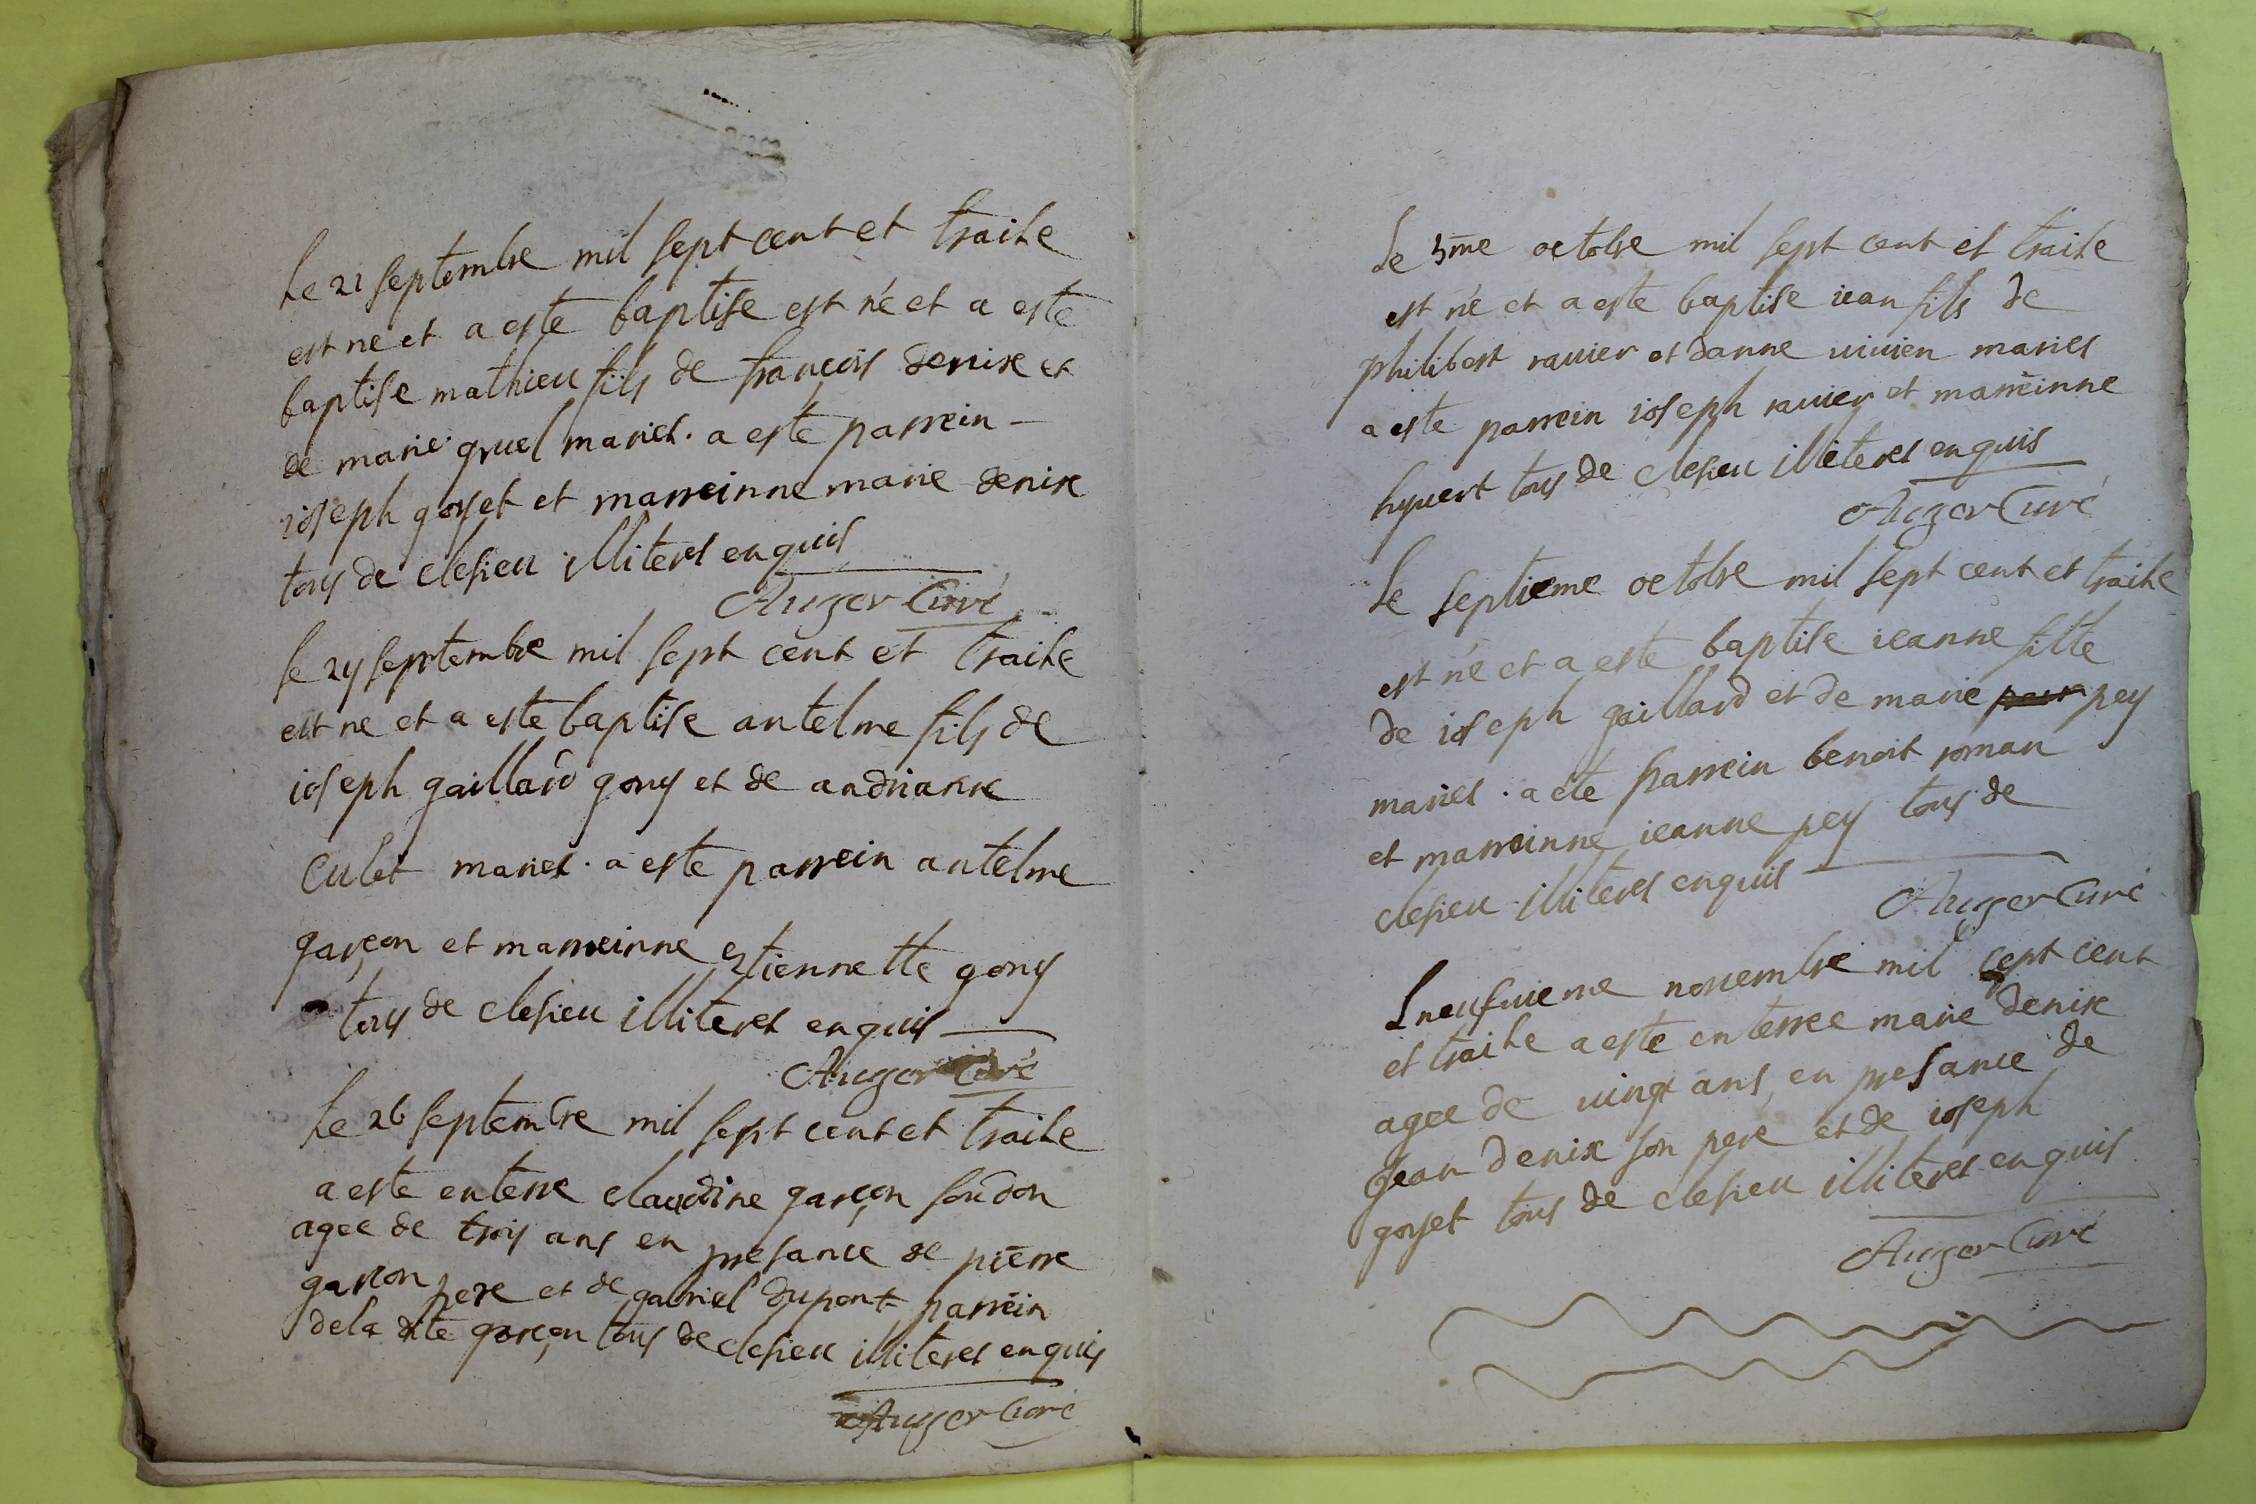 Le 21 septembre mil sept cent et traite
est ne et a este baptise est né et a este
baptise mathieu fils de françois denise et
de marie gruel mariés. a este parrein -
ioseph goyet et marreinne marie denise
tous de clesieu illiteres enquis
Auger Curé
le 24 septembre mil sept cent et traite
est ne et a este baptise antelme fils de
ioseph gaillard gony et de andrianne
Culet mariés. a este parrein antelme
garçon et marreinne etiennette gony
tous de clesieu illiteres enquis
Auger Curé
Le 26 septembre mil sept cent et traite
a este enterre claudine garçon soudon
agee de trois ans en presance de pierre
garçon pere et de gabriel dupont parrein
de la dite garçon tous de clesieu illiteres enquis
Auger Curé
Le 3me octobre mil sept cent et traite
est né et a este baptise iean fils de
philibert ravier et danne uiuien mariés
a este parrein ioseph rauier et marreinne
hyuert tous de clesieu illiteres enquis
Auger Curé
Le septieme octobre mil sept cent et traite
est né et a este baptise ieanne fille
de ioseph gaillard et de marie pey
mariés. a ete parrein benoit roman
et marreinne ieanne pey tous de
clesieu illiteres enquis
Auger Curé
Lneufuieme novembre mil sept cent
et traite a este enterree marie denise
agee de uingt ans, en presance de
Jean denise son pere et de ioseph
goyet tous de clesieu illiteres enquis
Auger Curé